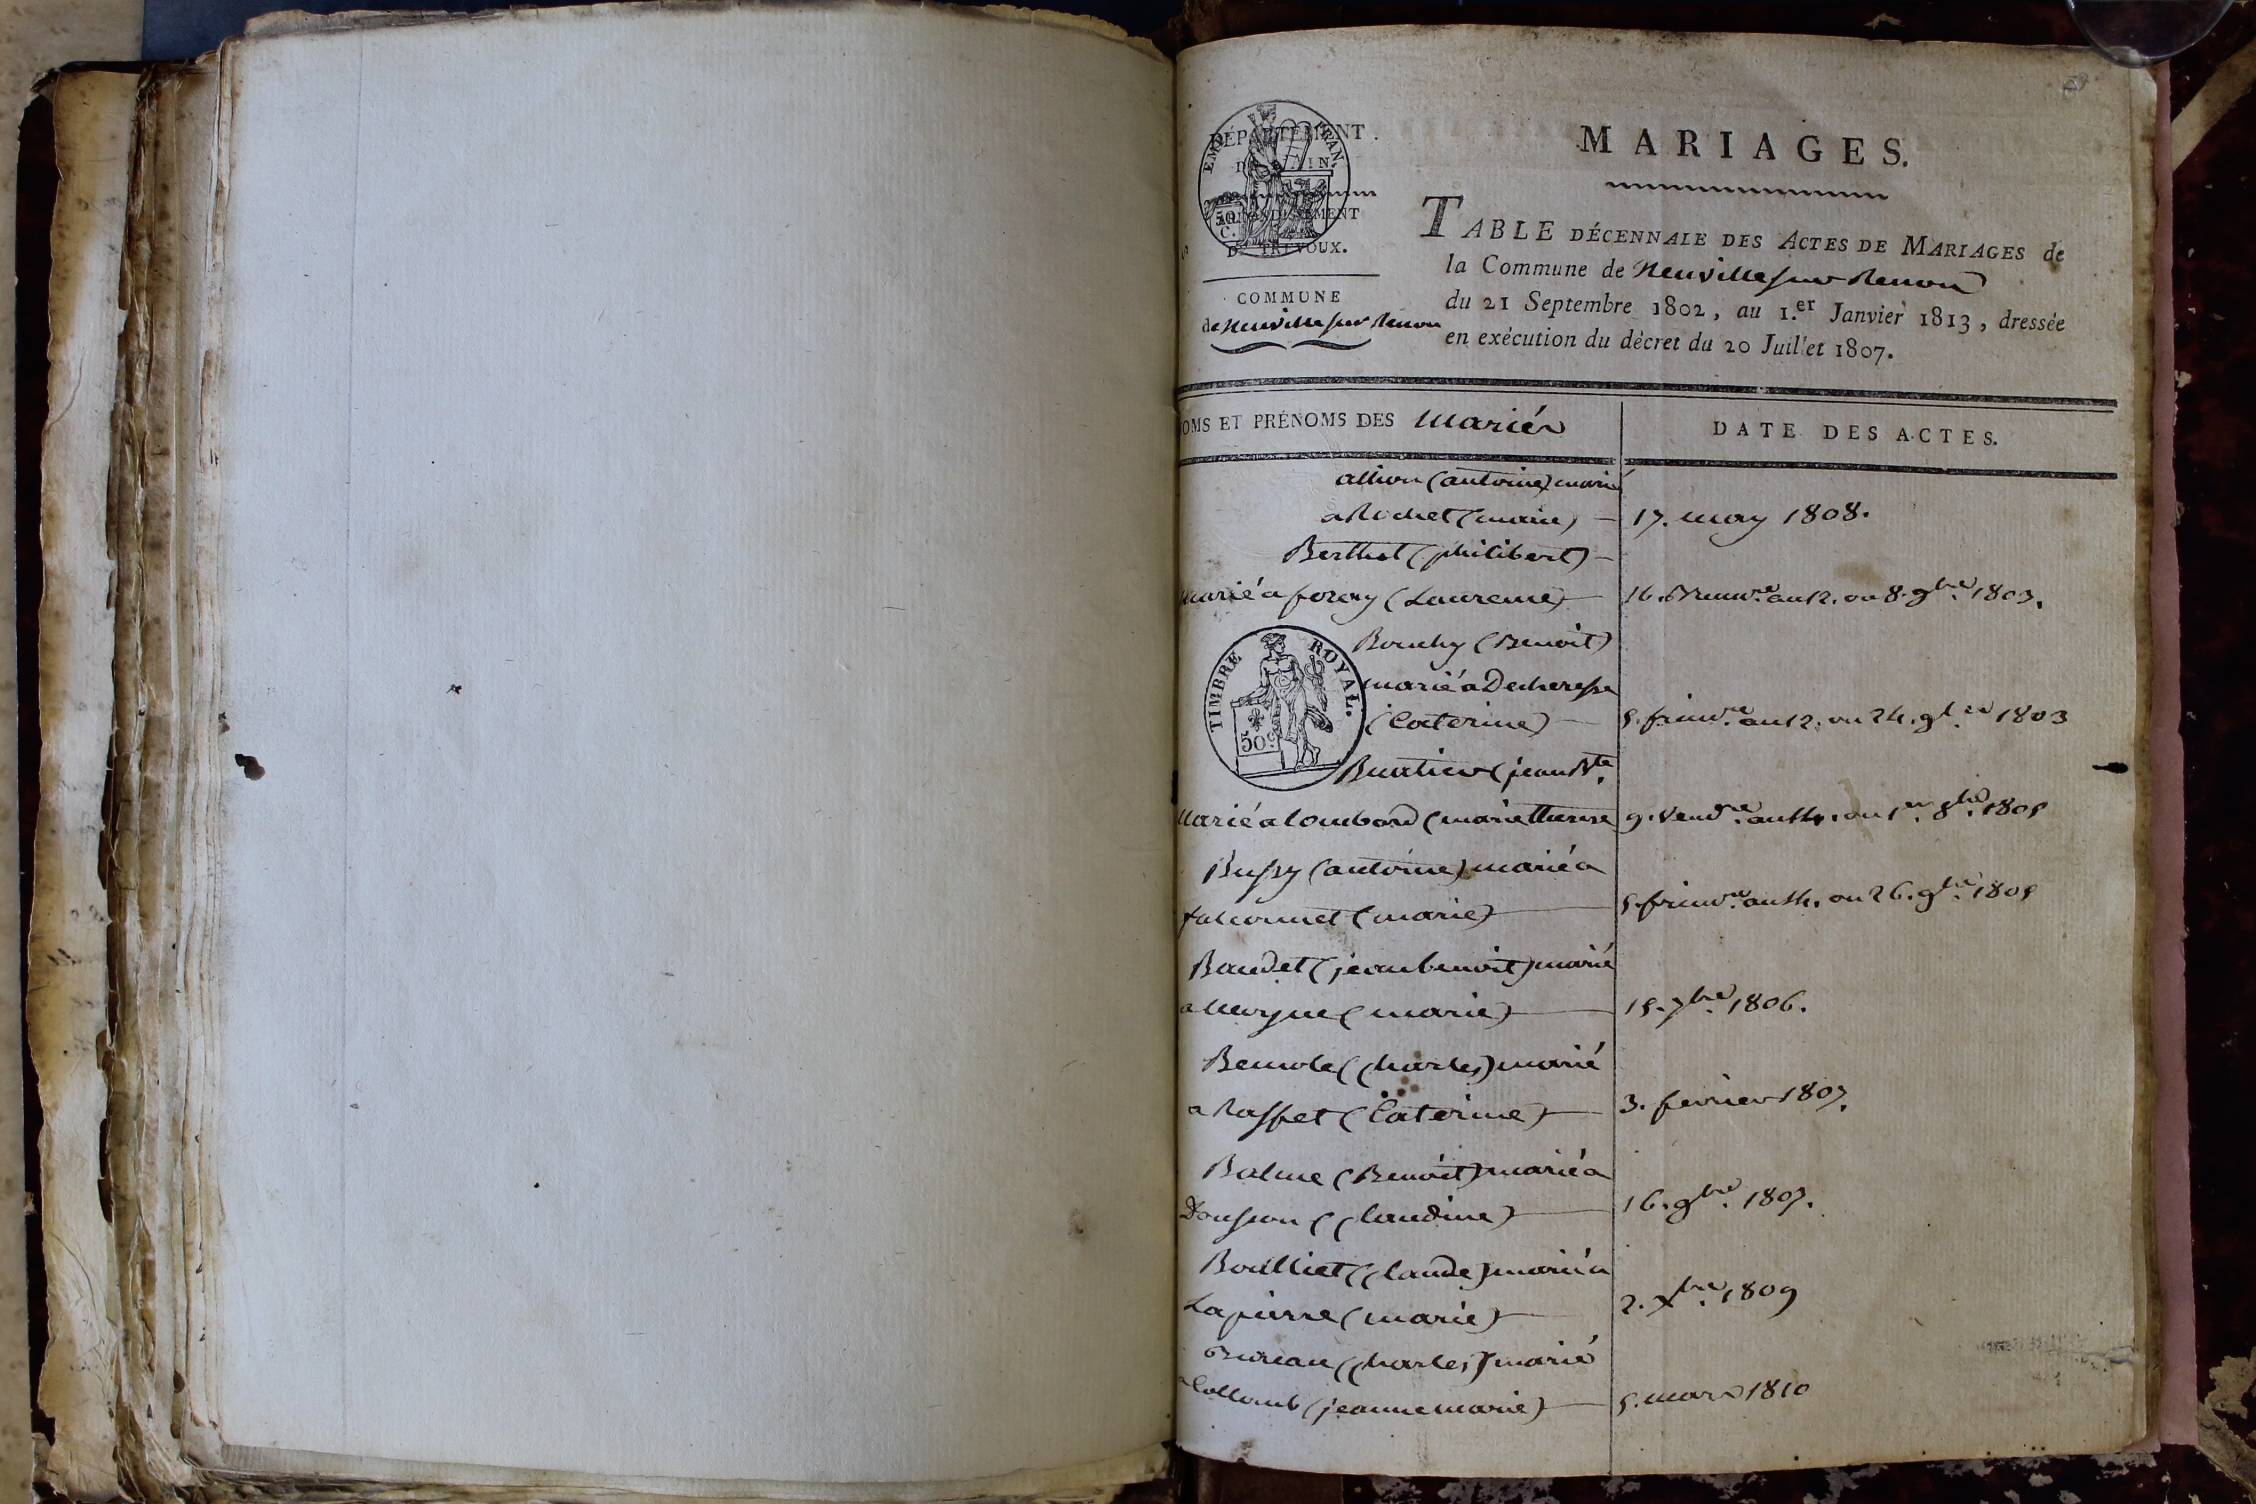 DÉPARTEMENT
DE L'AIN.
EMP. FRAN.
50 C.
ARRONDISSEMENT
DE TRÉVOUX.
COMMUNE
de Neuville sur Renon
MARIAGES.
TABLE DÉCENNALE DES ACTES DE MARIAGES de
la Commune de Neuville sur Renon
du 21 Septembre 1802, au 1.er Janvier 1813, dressée
en exécution du décret du 20 Juillet 1807.
NOMS ET PRÉNOMS DES Mariés
DATE DES ACTES.
allion (antoine) marié
a Rochet (marie) — 17. may 1808.
Berthet (philibert) —
Marié a forey (Laurence) — 16. Brum.re an 12. ou 8. 9bre. 1803.
TIMBRE ROYAL.
50 c.
Bouchy (Benoit)
marié a Decheresse
(Caterine) — 5. frim.re an 12. ou 24. 9bre 1803
Buatier (jean Bte.
Marié a lombard (marie therese 9. Vend.re an 14. ou 1er. 8bre. 1805
Bussy (antoine) marié a
falconnet (marie) — 5. frim.re an 14. ou 26. 9bre. 1805
Baudet (jean benoit) marié
a (marie) — 15. 7bre. 1806.
(Charles) marié
a Raffet (Caterine) — 3. fevrier 1807.
Balme (Benoit) marié a
(Claudine) — 16. 9bre. 1807.
(Claude) marié a
Lapierre (marie) — 2. Xbre. 1809
Bureau (Charles) marié
a Collomb (jeanne marie) — 5. mars 1810